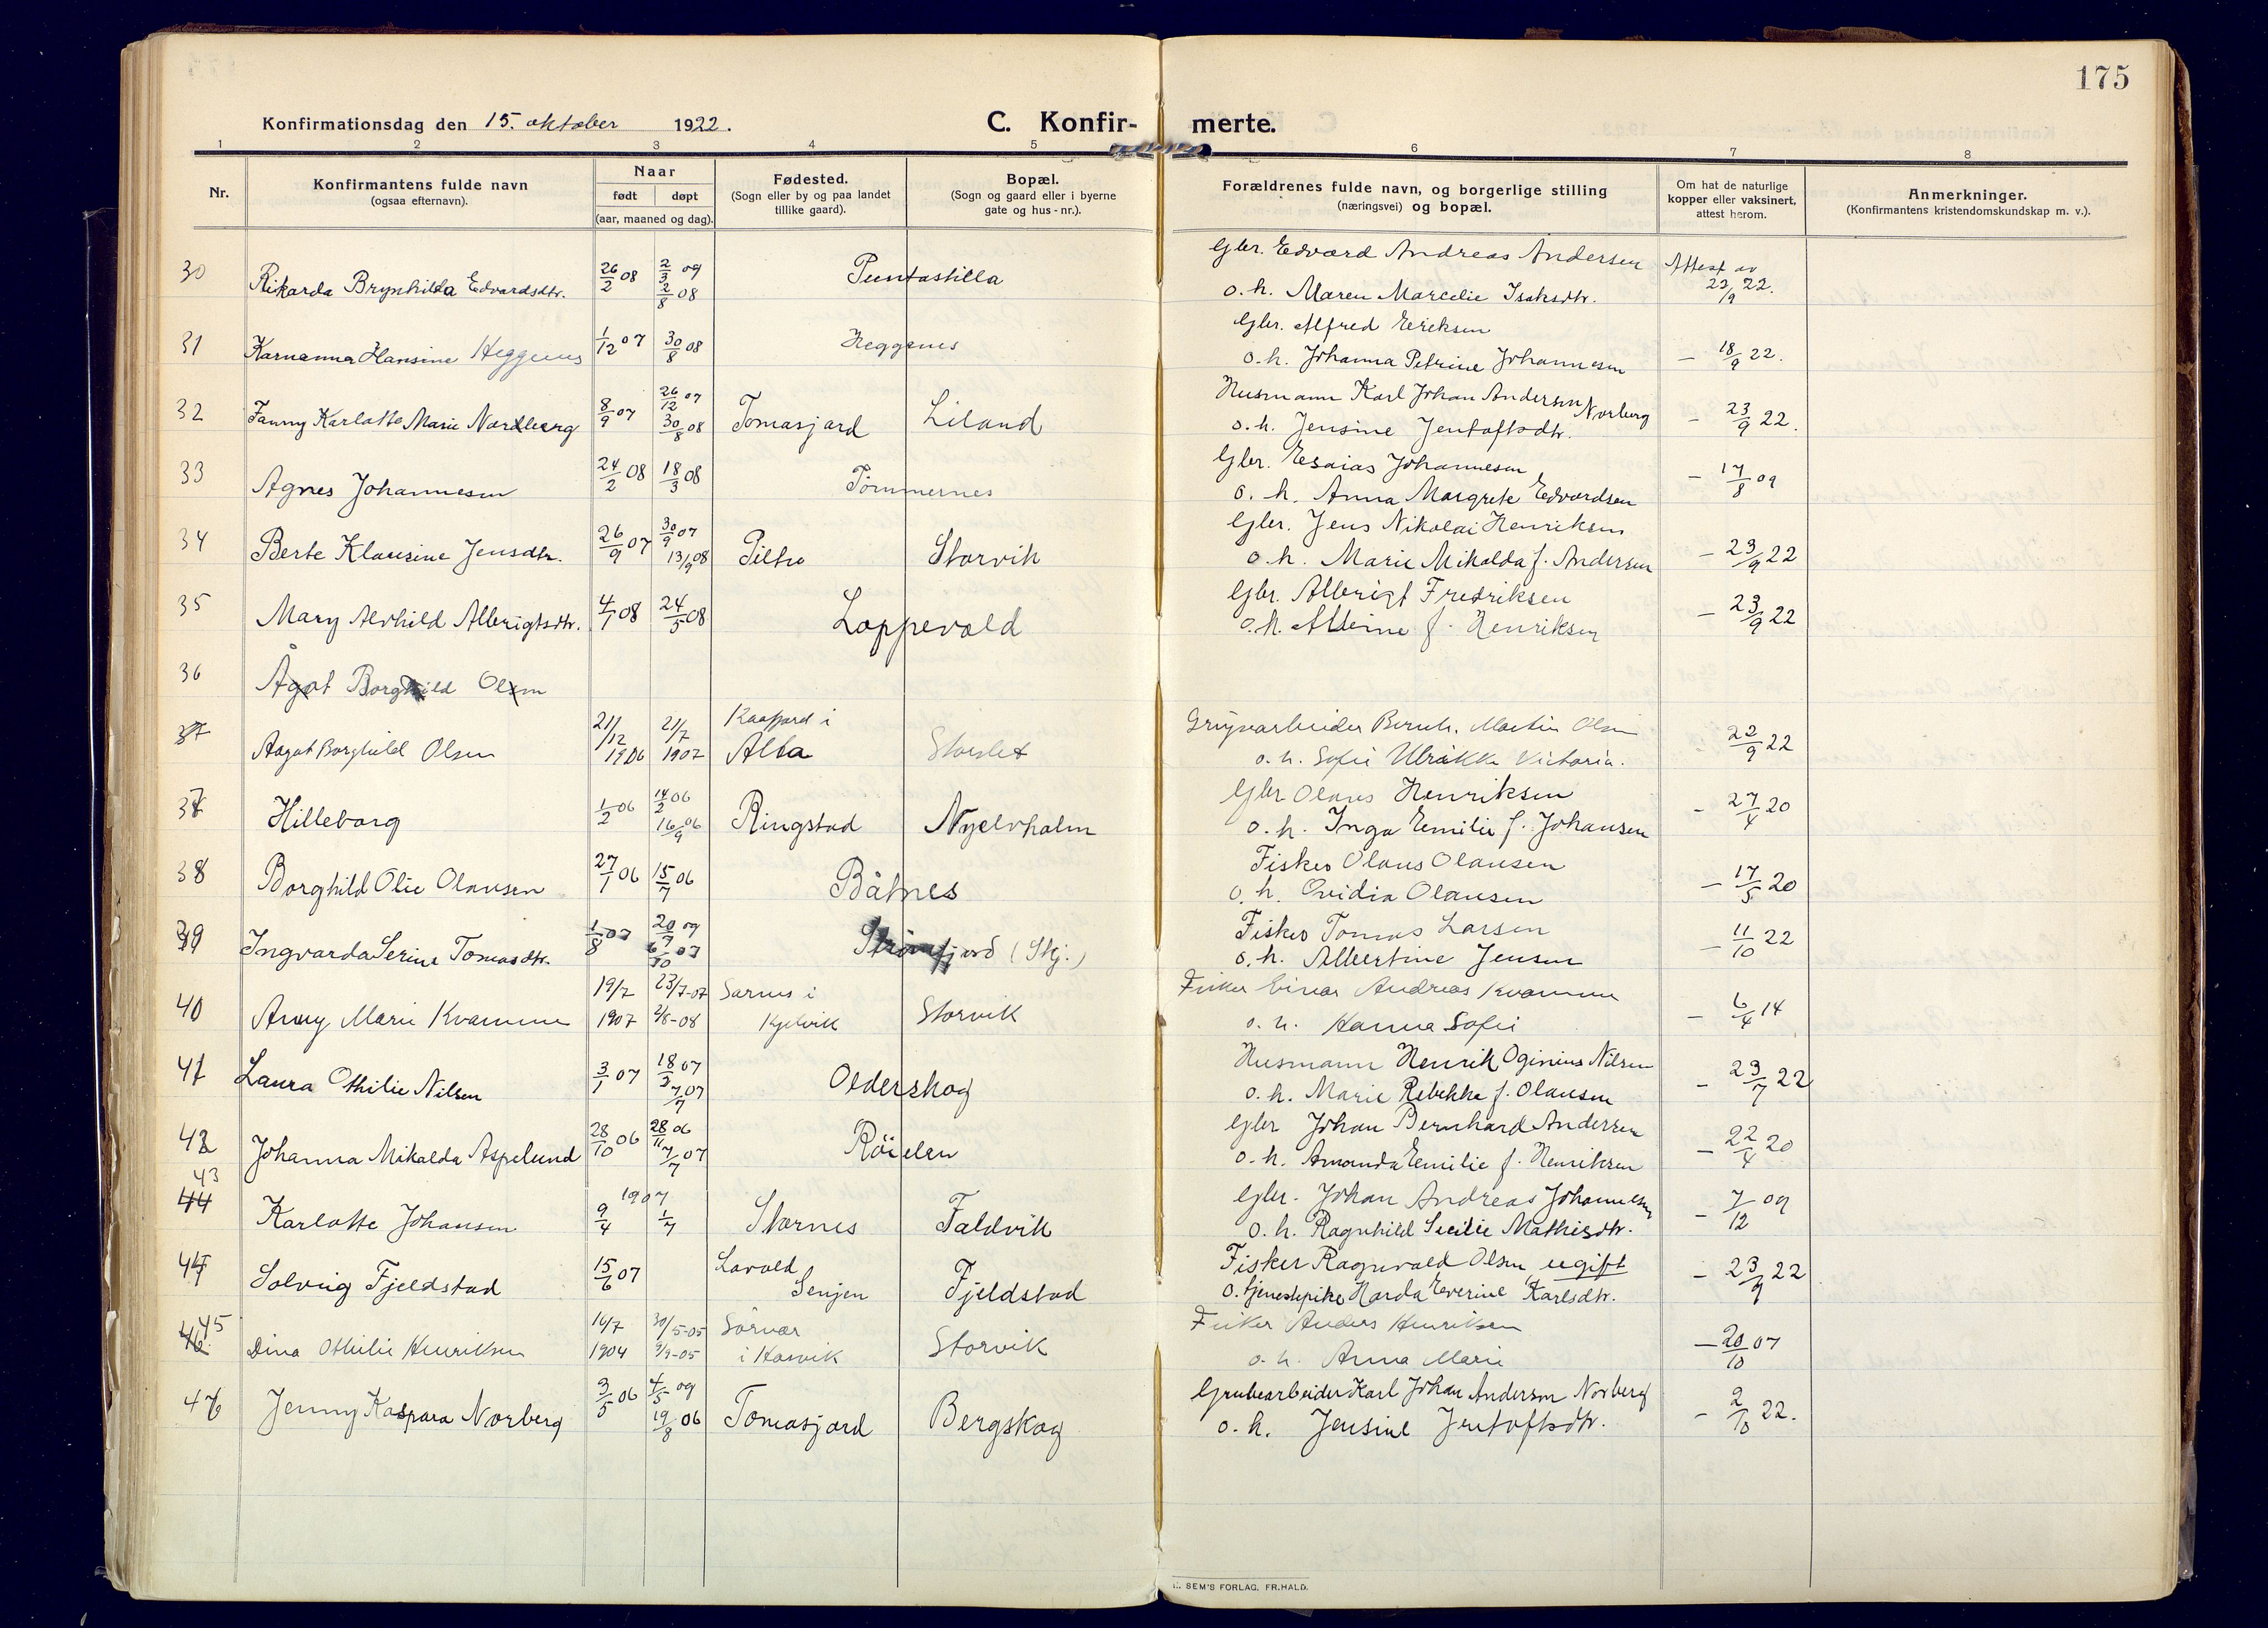 175
Konfirmationsdag den 15. oktober 1922.
C. Konfir- merte.
1 2 3 4 5 6 7 8
Nr.
Konfirmantens fulde navn
(ogsaa efternavn).
Naar
født døpt
(aar, maaned og dag).
Fødested.
(Sogn eller by og paa landet
tillike gaard).
Bopæl.
(Sogn og gaard eller i byerne
gate og hus-nr.).
Forældrenes fulde navn, og borgerlige stilling
(næringsvei) og bopæl.
Om hat de naturlige
kopper eller vaksinert,
attest herom.
Anmerkninger.
(Konfirmantens kristendomskundskap m. v.).
30 Rikarda Brynhilda Edvardsdtr. 26/2 08 2/3 09 2/8 08 Puntastilla
Gbr. Edvard Andreas Andersen
o. h. Maren Marcelie Isaksdtr.
Attest av 22/9 22.
31 Karnanna Hansine Heggenes 1/12 07 30/8 08 Heggenes
Gbr. Alfred Eriksen
o. h. Johanna Petrine Johannesen
– 18/9 22.
32 Fanny Karlotte Marie Nordberg 8/9 07 26/12 07 30/8 08 Tomasjord Liland
Husmann Karl Johan Andersen Norberg
o. h. Jensine Jentoftsdtr.
– 23/9 22.
33 Agnes Johannesen 24/2 08 18/3 08 Tömmernes
Gbr. Esaias Johannesen
o. h. Anna Margrete Edvardsen
– 17/8 09
34 Berte Klausine Jensdtr. 26/9 07 30/9 07 13/9 08 Piltro Storvik
Gbr. Jens Nikolai Henriksen
o. h. Marie Mikalda f. Andersen
– 23/9 22
35 Mary Alvhild Albrigtsdtr. 4/1 08 24/5 08 Loppevold
Gbr. Albrigt Fredriksen
o. h. Alteine f. Henriksen
– 23/9 22
36 Ågot Borghild Olsen
37 Aagot Borghild Olsen 21/12 1906 21/7 1907 Kaafjord i Alta Storslet
Gruvarbeider Bernh. Martin Olsen
o. h. Sofie Ulrikke Victoria.
22/9 22
37 Hilleborg 1/2 06 14/2 06 16/9 06 Ringstad Nyelvholm
Gbr. Olaus Henriksen
o. h. Inga Emilie f. Johansen
– 27/4 20
38 Borghild Olie Olausen 27/1 06 15/7 06 Båtnes
Fisker Olaus Olausen
o. h. Ovidia Olausen
– 17/5 20
39 Ingvarda Serine Tomasdtr. 1/8 07 20/9 09 6/10 07 Strömfjord (Skj.)
Fisker Tomas Larsen
o. h. Albertine Jensen
– 11/10 22
40 Anny Marie Kvamme 19/7 1907 23/7-07 2/8-08 Sarnes i Kjelvik Storvik
Fisker Einar Andreas Kvamme
o. h. Hanna Sofie
– 6/4 14
41 Laura Othilie Nilsen 3/1 07 18/3 07 7/7 07 Olderskog
Husmann Henrik Oginius Nilsen
o. h. Marie Rebekka f. Olausen
– 23/7 22
42 Johanna Mikalda Aspelund 28/10 06 28/11 06 7/7 07 Röielen
Gbr Johan Bernhard Andersen
o. h. Amanda Emilie f. Henriksen
– 22/4 20
43
44 Karlotte Johansen 1907 9/4 1/7 Stornes Taldvik
Gbr. Johan Andreas Johannesen
o. h. Ragnhild Secilie Mathisdtr.
– 7/12 09
44 Solvig Fjeldstad 15/6 07 Lavold Senjen Fjeldstad
Fisker Ragnvald Olsen, ugift
o. tjenestepike Harda Everine Karlsdtr.
– 23/9 22
45
46 Dina Othilie Henriksen 16/7 1904 30/5-05 3/9-05 Sörvær i Hasvik Storvik
Fisker Anders Henriksen
o. h. Anna Marie
– 20/10 07
46 Jenny Kaspara Norberg 3/5 06 4/5 09 19/8 06 Tomasjord Bergskog
Grubearbeider Karl Johan Andersen Norberg
o. h. Jensine Jentoftsdtr.
– 2/10 22.
SEM'S FORLAG, FR.HALD.